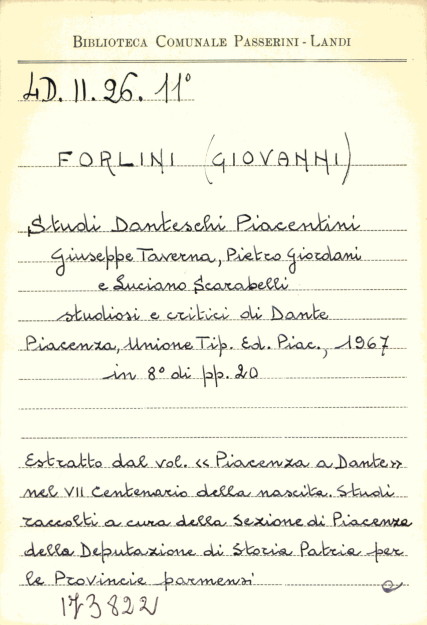 BIBLIOTECA COMUNALE PASSERINI - LANDI
4D. II. 26. 11°
FORLINI (GIOVANNI)
Studi Danteschi Piacentini
Giuseppe Taverna, Pietro Giordani
e Luciano Scarabelli
studiosi e critici di Dante
Piacenza, Unione Tip. Ed. Piac., 1967
in 8° di pp. 20
Estratto dal vol. «Piacenza a Dante»
nel VII Centenario della nascita. Studi
raccolti a cura della Sezione di Piacenza
della Deputazione di Storia Patria per
le Provincie parmensi
173822